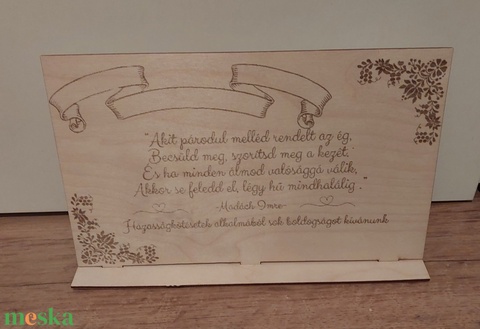 "Akit párodul melléd rendelt az ég,
Becsüld meg, szorítsd meg a kezét,
És ha minden álmod valósággá válik,
Akkor se feledd el, légy hű mindhalálig."
-Madách Imre-
Házasságkötésetek alkalmából sok boldogságot kívánunk
meska